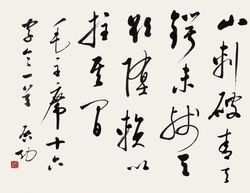 山刺破青天
锷未残天
欲堕赖以
拄其间
毛主席十六
字令一首 启功